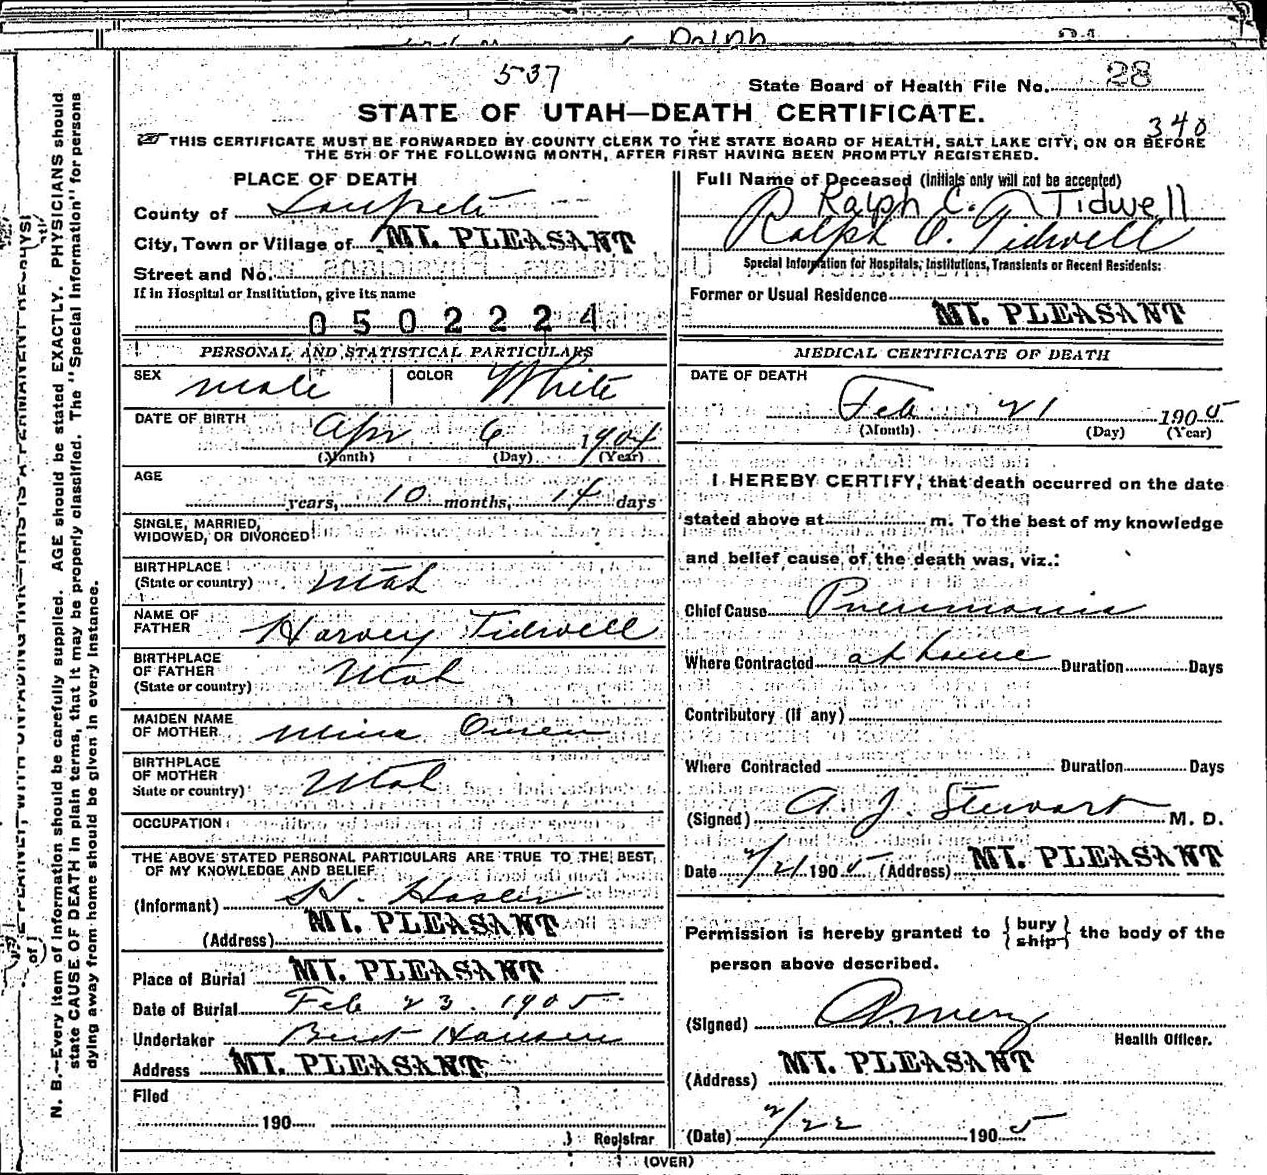 Ralph
537
State Board of Health File No. 28
STATE OF UTAH—DEATH CERTIFICATE.
340
THIS CERTIFICATE MUST BE FORWARDED BY COUNTY CLERK TO THE STATE BOARD OF HEALTH, SALT LAKE CITY, ON OR BEFORE
THE 5TH OF THE FOLLOWING MONTH, AFTER FIRST HAVING BEEN PROMPTLY REGISTERED.
PLACE OF DEATH
County of Sanpete
City, Town or Village of MT. PLEASANT
Street and No.
If in Hospital or Institution, give its name
0 5 0 2 2 2 4
Full Name of Deceased (Initials only will not be accepted)
Ralph C. Tidwell
Ralph C. Tidwell
Special Information for Hospitals, Institutions, Transients or Recent Residents:
Former or Usual Residence
MT. PLEASANT
PERSONAL AND STATISTICAL PARTICULARS
SEX male COLOR White
DATE OF BIRTH
Apr 6 1904
(Month) (Day) (Year)
AGE
years, 10 months, 14 days
SINGLE, MARRIED,
WIDOWED, OR DIVORCED
BIRTHPLACE
(State or country) Utah
NAME OF
FATHER Harvey Tidwell
BIRTHPLACE
OF FATHER
(State or country) Utah
MAIDEN NAME
OF MOTHER Mina Owen
BIRTHPLACE
OF MOTHER
State or country) Utah
OCCUPATION
THE ABOVE STATED PERSONAL PARTICULARS ARE TRUE TO THE BEST
OF MY KNOWLEDGE AND BELIEF
(Informant) H. Hasler
MT. PLEASANT
(Address)
Place of Burial MT. PLEASANT
Date of Burial Feb 23. 1905
Undertaker Bent Hansen
Address MT. PLEASANT
Filed
190
Registrar
MEDICAL CERTIFICATE OF DEATH
DATE OF DEATH
Feb 21 1905
(Month) (Day) (Year)
I HEREBY CERTIFY, that death occurred on the date
stated above at m. To the best of my knowledge
and belief cause of the death was, viz.:
Chief Cause Pneumonia
Where Contracted at home Duration Days
Contributory (if any)
Where Contracted Duration Days
(Signed) A. J. Stewart M. D.
Date 2/21 1905 (Address) MT. PLEASANT
Permission is hereby granted to { bury
ship } the body of the
person above described.
(Signed)
Health Officer.
MT. PLEASANT
(Address)
(Date) 2/22 1905
(OVER)
N. B.—Every item of information should be carefully supplied. AGE should be stated EXACTLY. PHYSICIANS should
state CAUSE OF DEATH in plain terms, that it may be properly classified. The "Special Information" for persons
dying away from home should be given in every instance.